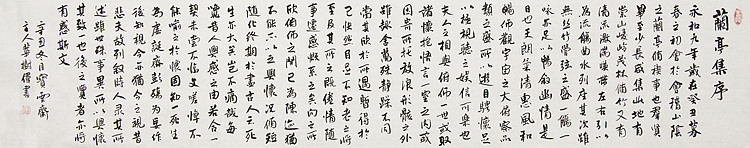 蘭亭集序
永和九年歲在癸丑暮
春之初會于會稽山陰
之蘭亭脩禊事也群賢
畢至少長咸集此地有
崇山峻嶺茂林脩竹又有
清流激湍暎帶左右引以
為流觴曲水列坐其次雖
無絲竹管弦之盛一觴一
詠亦足以暢敘幽情是
日也天朗氣清惠風和
暢仰觀宇宙之大俯察品
類之盛所以遊目騁懷足
以極視聽之娛信可樂也
夫人之相與俯仰一世或取
諸懷抱悟言一室之內或
因寄所託放浪形骸之外
雖趣舍萬殊靜躁不同
當其欣於所遇暫得於
己快然自足不知老之將
至及其所之既倦情隨
事遷感慨係之矣向之所
欣俛仰之間已為陳迹猶
不能不以之興懷況脩短
隨化終期於盡古人云死
生亦大矣豈不痛哉每
覽昔人興感之由若合一
契未嘗不臨文嗟悼不
能喻之於懷固知一死生
為虛誕齊彭殤為妄作
後之視今亦猶今之視昔
悲夫故列敘時人錄其所
述雖世殊事異所以興懷
其致一也後之覽者亦將
有感斯文
辛丑冬月寶雲齋
主人樹偉書